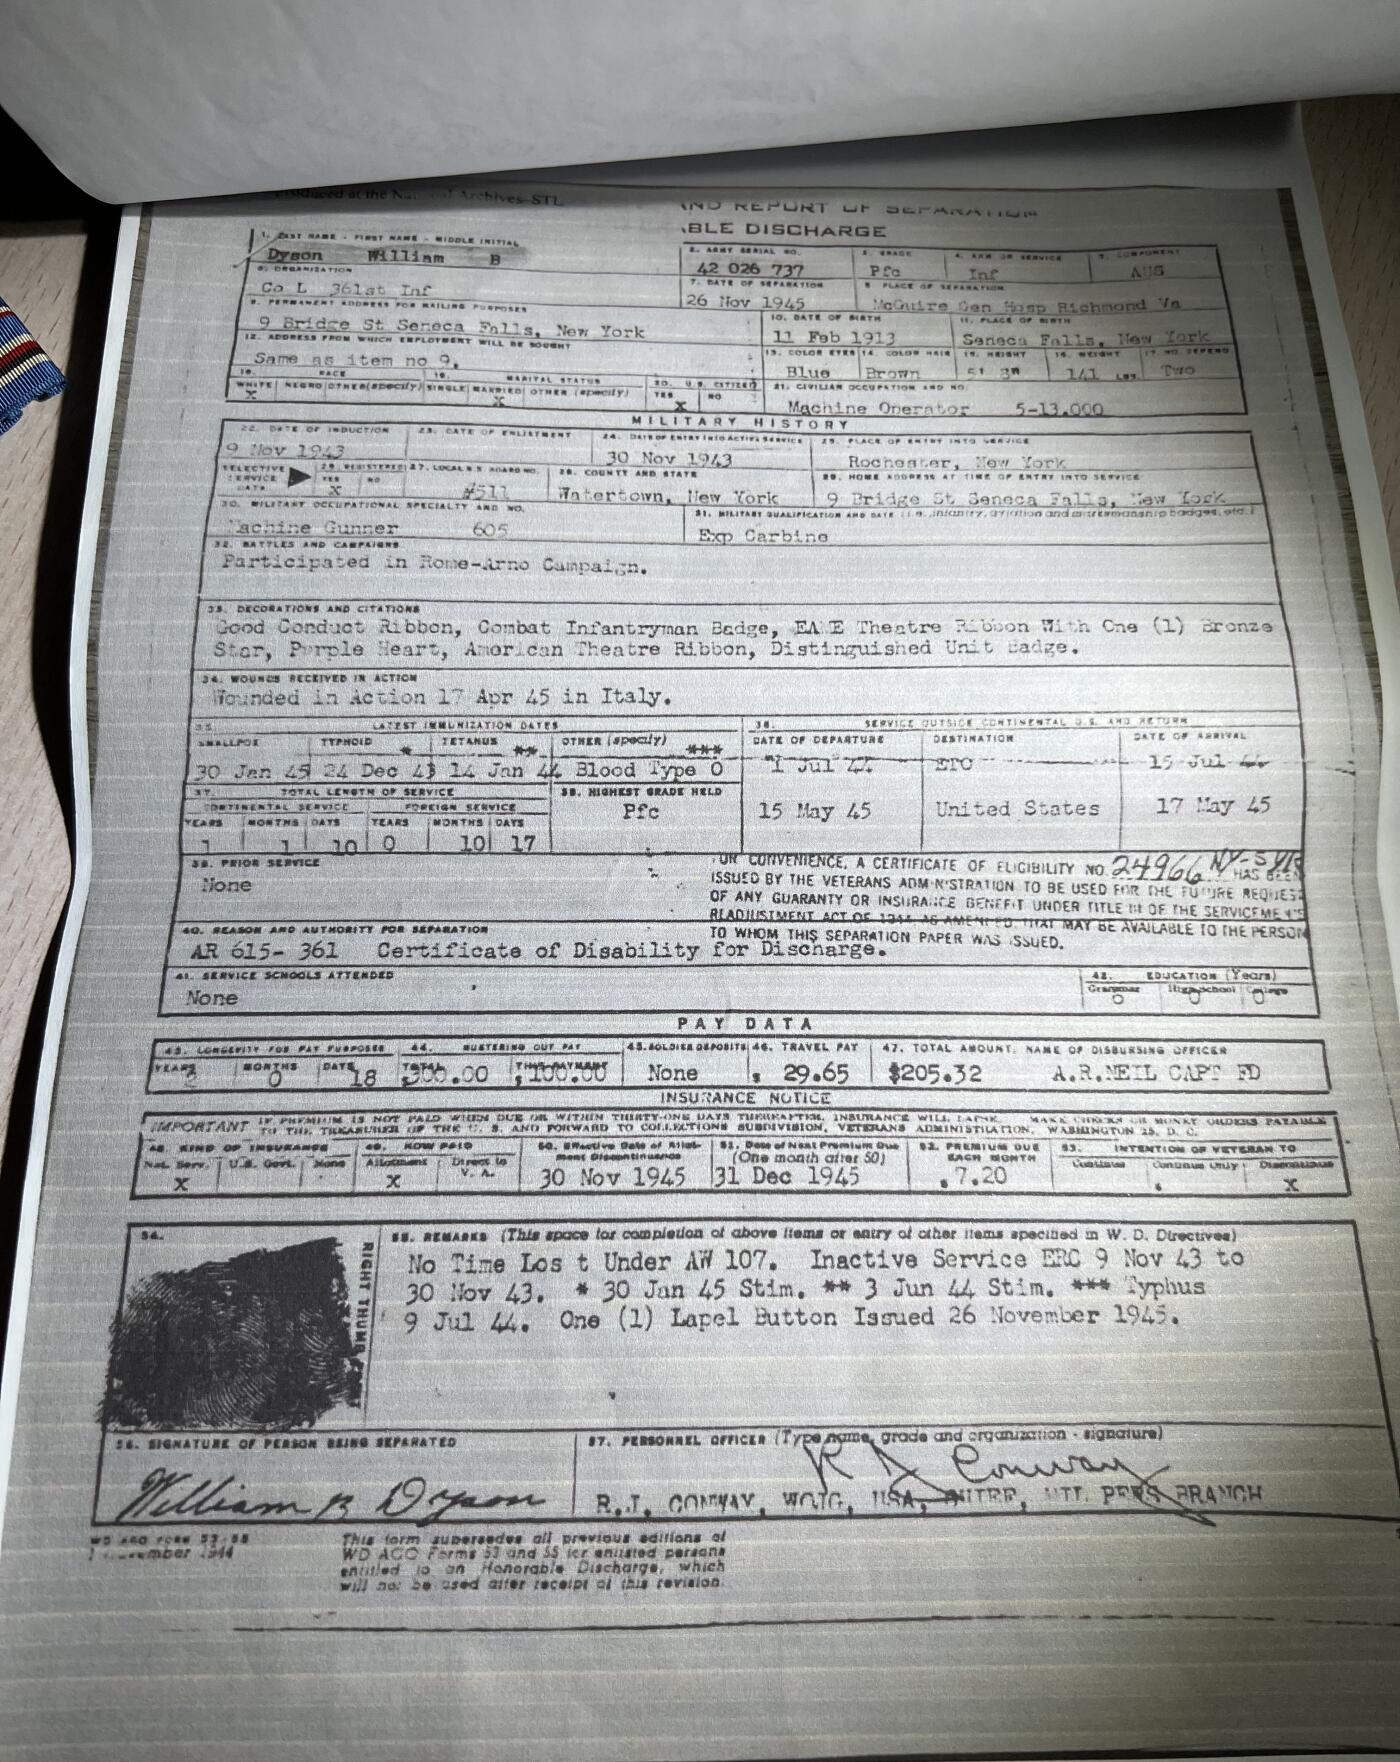 Produced at the National Archives-STL
AND REPORT OF SEPARATION
ABLE DISCHARGE
1. LAST NAME - FIRST NAME - MIDDLE INITIAL
Dyson William B
2. ARMY SERIAL NO.
42 026 737
3. GRADE
Pfc
4. ARM OR SERVICE
Inf
5. COMPONENT
AUS
6. ORGANIZATION
Co L 361st Inf
7. DATE OF SEPARATION
26 Nov 1945
8. PLACE OF SEPARATION
McGuire Gen Hosp Richmond Va
9. PERMANENT ADDRESS FOR MAILING PURPOSES
9 Bridge St Seneca Falls, New York
10. DATE OF BIRTH
11 Feb 1913
11. PLACE OF BIRTH
Seneca Falls, New York
12. ADDRESS FROM WHICH EMPLOYMENT WILL BE SOUGHT
Same as item no 9.
13. COLOR EYES
Blue
14. COLOR HAIR
Brown
15. HEIGHT
5' 3"
16. WEIGHT
141 LBS.
17. NO. DEPEND.
Two
18. RACE
WHITE NEGRO OTHER (specify)
X
19. MARITAL STATUS
SINGLE MARRIED OTHER (specify)
X
20. U.S. CITIZEN
YES NO
X
21. CIVILIAN OCCUPATION AND NO.
Machine Operator 5-13.000
MILITARY HISTORY
22. DATE OF INDUCTION
9 Nov 1943
23. DATE OF ENLISTMENT
24. DATE OF ENTRY INTO ACTIVE SERVICE
30 Nov 1943
25. PLACE OF ENTRY INTO SERVICE
Rochester, New York
SELECTIVE SERVICE DATA
26. REGISTERED
YES NO
X
27. LOCAL S.S. BOARD NO.
#511
28. COUNTY AND STATE
Watertown, New York
29. HOME ADDRESS AT TIME OF ENTRY INTO SERVICE
9 Bridge St Seneca Falls, New York
30. MILITARY OCCUPATIONAL SPECIALTY AND NO.
Machine Gunner 605
31. MILITARY QUALIFICATION AND DATE (i.e., infantry, aviation and marksmanship badges, etc.)
Exp Carbine
32. BATTLES AND CAMPAIGNS
Participated in Rome-Arno Campaign.
33. DECORATIONS AND CITATIONS
Good Conduct Ribbon, Combat Infantryman Badge, EAME Theatre Ribbon With One (1) Bronze
Star, Purple Heart, American Theatre Ribbon, Distinguished Unit Badge.
34. WOUNDS RECEIVED IN ACTION
Wounded in Action 17 Apr 45 in Italy.
35. LATEST IMMUNIZATION DATES
SMALLPOX TYPHOID * TETANUS ** OTHER (specify) ***
30 Jan 45 24 Dec 43 14 Jan 44 Blood Type O
36. SERVICE OUTSIDE CONTINENTAL U.S. AND RETURN
DATE OF DEPARTURE DESTINATION DATE OF ARRIVAL
1 Jul 44 ETO 15 Jul 44
15 May 45 United States 17 May 45
37. TOTAL LENGTH OF SERVICE
CONTINENTAL SERVICE FOREIGN SERVICE
YEARS MONTHS DAYS YEARS MONTHS DAYS
1 1 10 0 10 17
38. HIGHEST GRADE HELD
Pfc
39. PRIOR SERVICE
None
FOR CONVENIENCE, A CERTIFICATE OF ELIGIBILITY NO. 24966 NY-SYR HAS BEEN
ISSUED BY THE VETERANS ADMINISTRATION TO BE USED FOR THE FUTURE REQUEST
OF ANY GUARANTY OR INSURANCE BENEFIT UNDER TITLE III OF THE SERVICEMEN'S
READJUSTMENT ACT OF 1944 AS AMENDED THAT MAY BE AVAILABLE TO THE PERSON
TO WHOM THIS SEPARATION PAPER WAS ISSUED.
40. REASON AND AUTHORITY FOR SEPARATION
AR 615- 361 Certificate of Disability for Discharge.
41. SERVICE SCHOOLS ATTENDED
None
42. EDUCATION (Years)
Grammar High School College
0 0 0
PAY DATA
43. LONGEVITY FOR PAY PURPOSES
YEARS MONTHS DAYS
2 0 18
44. MUSTERING OUT PAY
TOTAL THIS PAYMENT
300.00 100.00
45. SOLDIER DEPOSITS
None
46. TRAVEL PAY
29.65
47. TOTAL AMOUNT, NAME OF DISBURSING OFFICER
$205.32 A.R.NEIL CAPT FD
INSURANCE NOTICE
IMPORTANT IF PREMIUM IS NOT PAID WHEN DUE OR WITHIN THIRTY-ONE DAYS THEREAFTER, INSURANCE WILL LAPSE. MAKE CHECKS OR MONEY ORDERS PAYABLE
TO THE TREASURER OF THE U. S. AND FORWARD TO COLLECTIONS SUBDIVISION, VETERANS ADMINISTRATION, WASHINGTON 25, D. C.
48. KIND OF INSURANCE
Nat. Serv. U.S. Govt. None
X
49. HOW PAID
Allotment Direct to V. A.
X
50. Effective Date of Allotment Discontinuance
30 Nov 1945
51. Date of Next Premium Due
(One month after 50)
31 Dec 1945
52. PREMIUM DUE
EACH MONTH
7.20
53. INTENTION OF VETERAN TO
Continue Continue Only Discontinue
X
54.
RIGHT THUMB PRINT
55. REMARKS (This space for completion of above items or entry of other items specified in W. D. Directives)
No Time Los t Under AW 107. Inactive Service ERC 9 Nov 43 to
30 Nov 43. * 30 Jan 45 Stim. ** 3 Jun 44 Stim. *** Typhus
9 Jul 44. One (1) Lapel Button Issued 26 November 1945.
56. SIGNATURE OF PERSON BEING SEPARATED
William B Dyson
57. PERSONNEL OFFICER (Type name, grade and organization - signature)
R J Conway
R.J. CONWAY, WOJG, USA, CHIEF, MIL PERS BRANCH
WD AGO FORM 53-55
1 November 1944
This form supersedes all previous editions of
WD AGO Forms 53 and 55 for enlisted persons
entitled to an Honorable Discharge, which
will not be used after receipt of this revision.